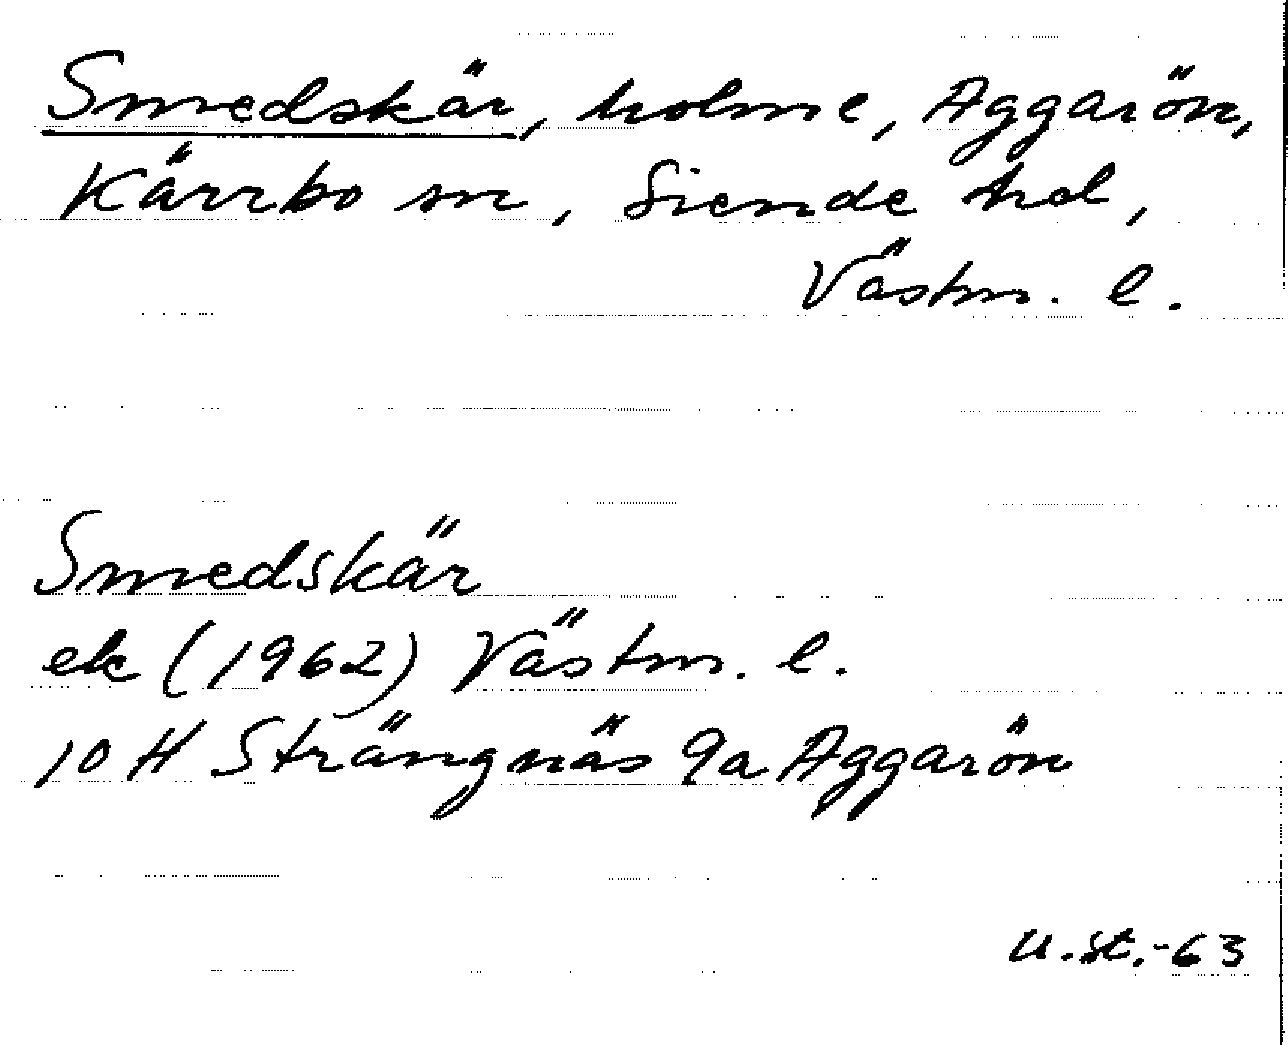 Smedskär, holme, Aggarön,
Kärrbo sn, Siende hd,
Västm. l.
Smedskär
ek (1962) Västm. l.
10 H Strängnäs 9a Aggarön
U.St.-63